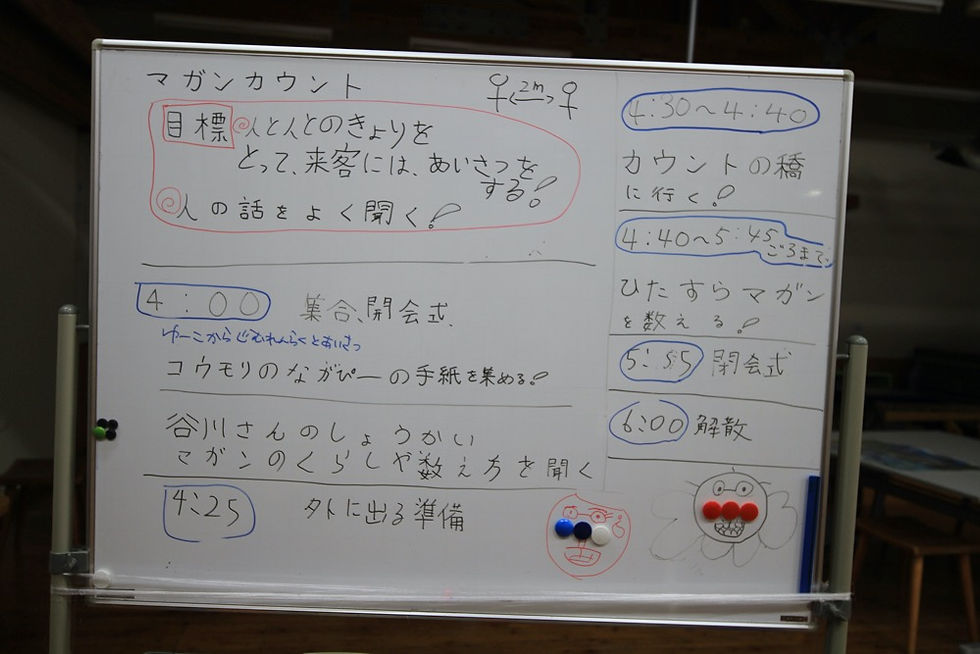 マガンカウント
2m
目標 人と人とのきょりを
とって、来客には、あいさつを
する!
人の話をよく聞く!
4:00 集合、開会式、
ゆーこからじむれんらくとあいさつ
コウモリのながぴーの手紙を集める!
谷川さんのしょうかい
マガンのくらしや数え方を聞く
4:25 外に出る準備
4:30~4:40
カウントの橋
に行く!
4:40~5:45
ごろまで
ひたすらマガン
を数える!
5:55 閉会式
6:00 解散